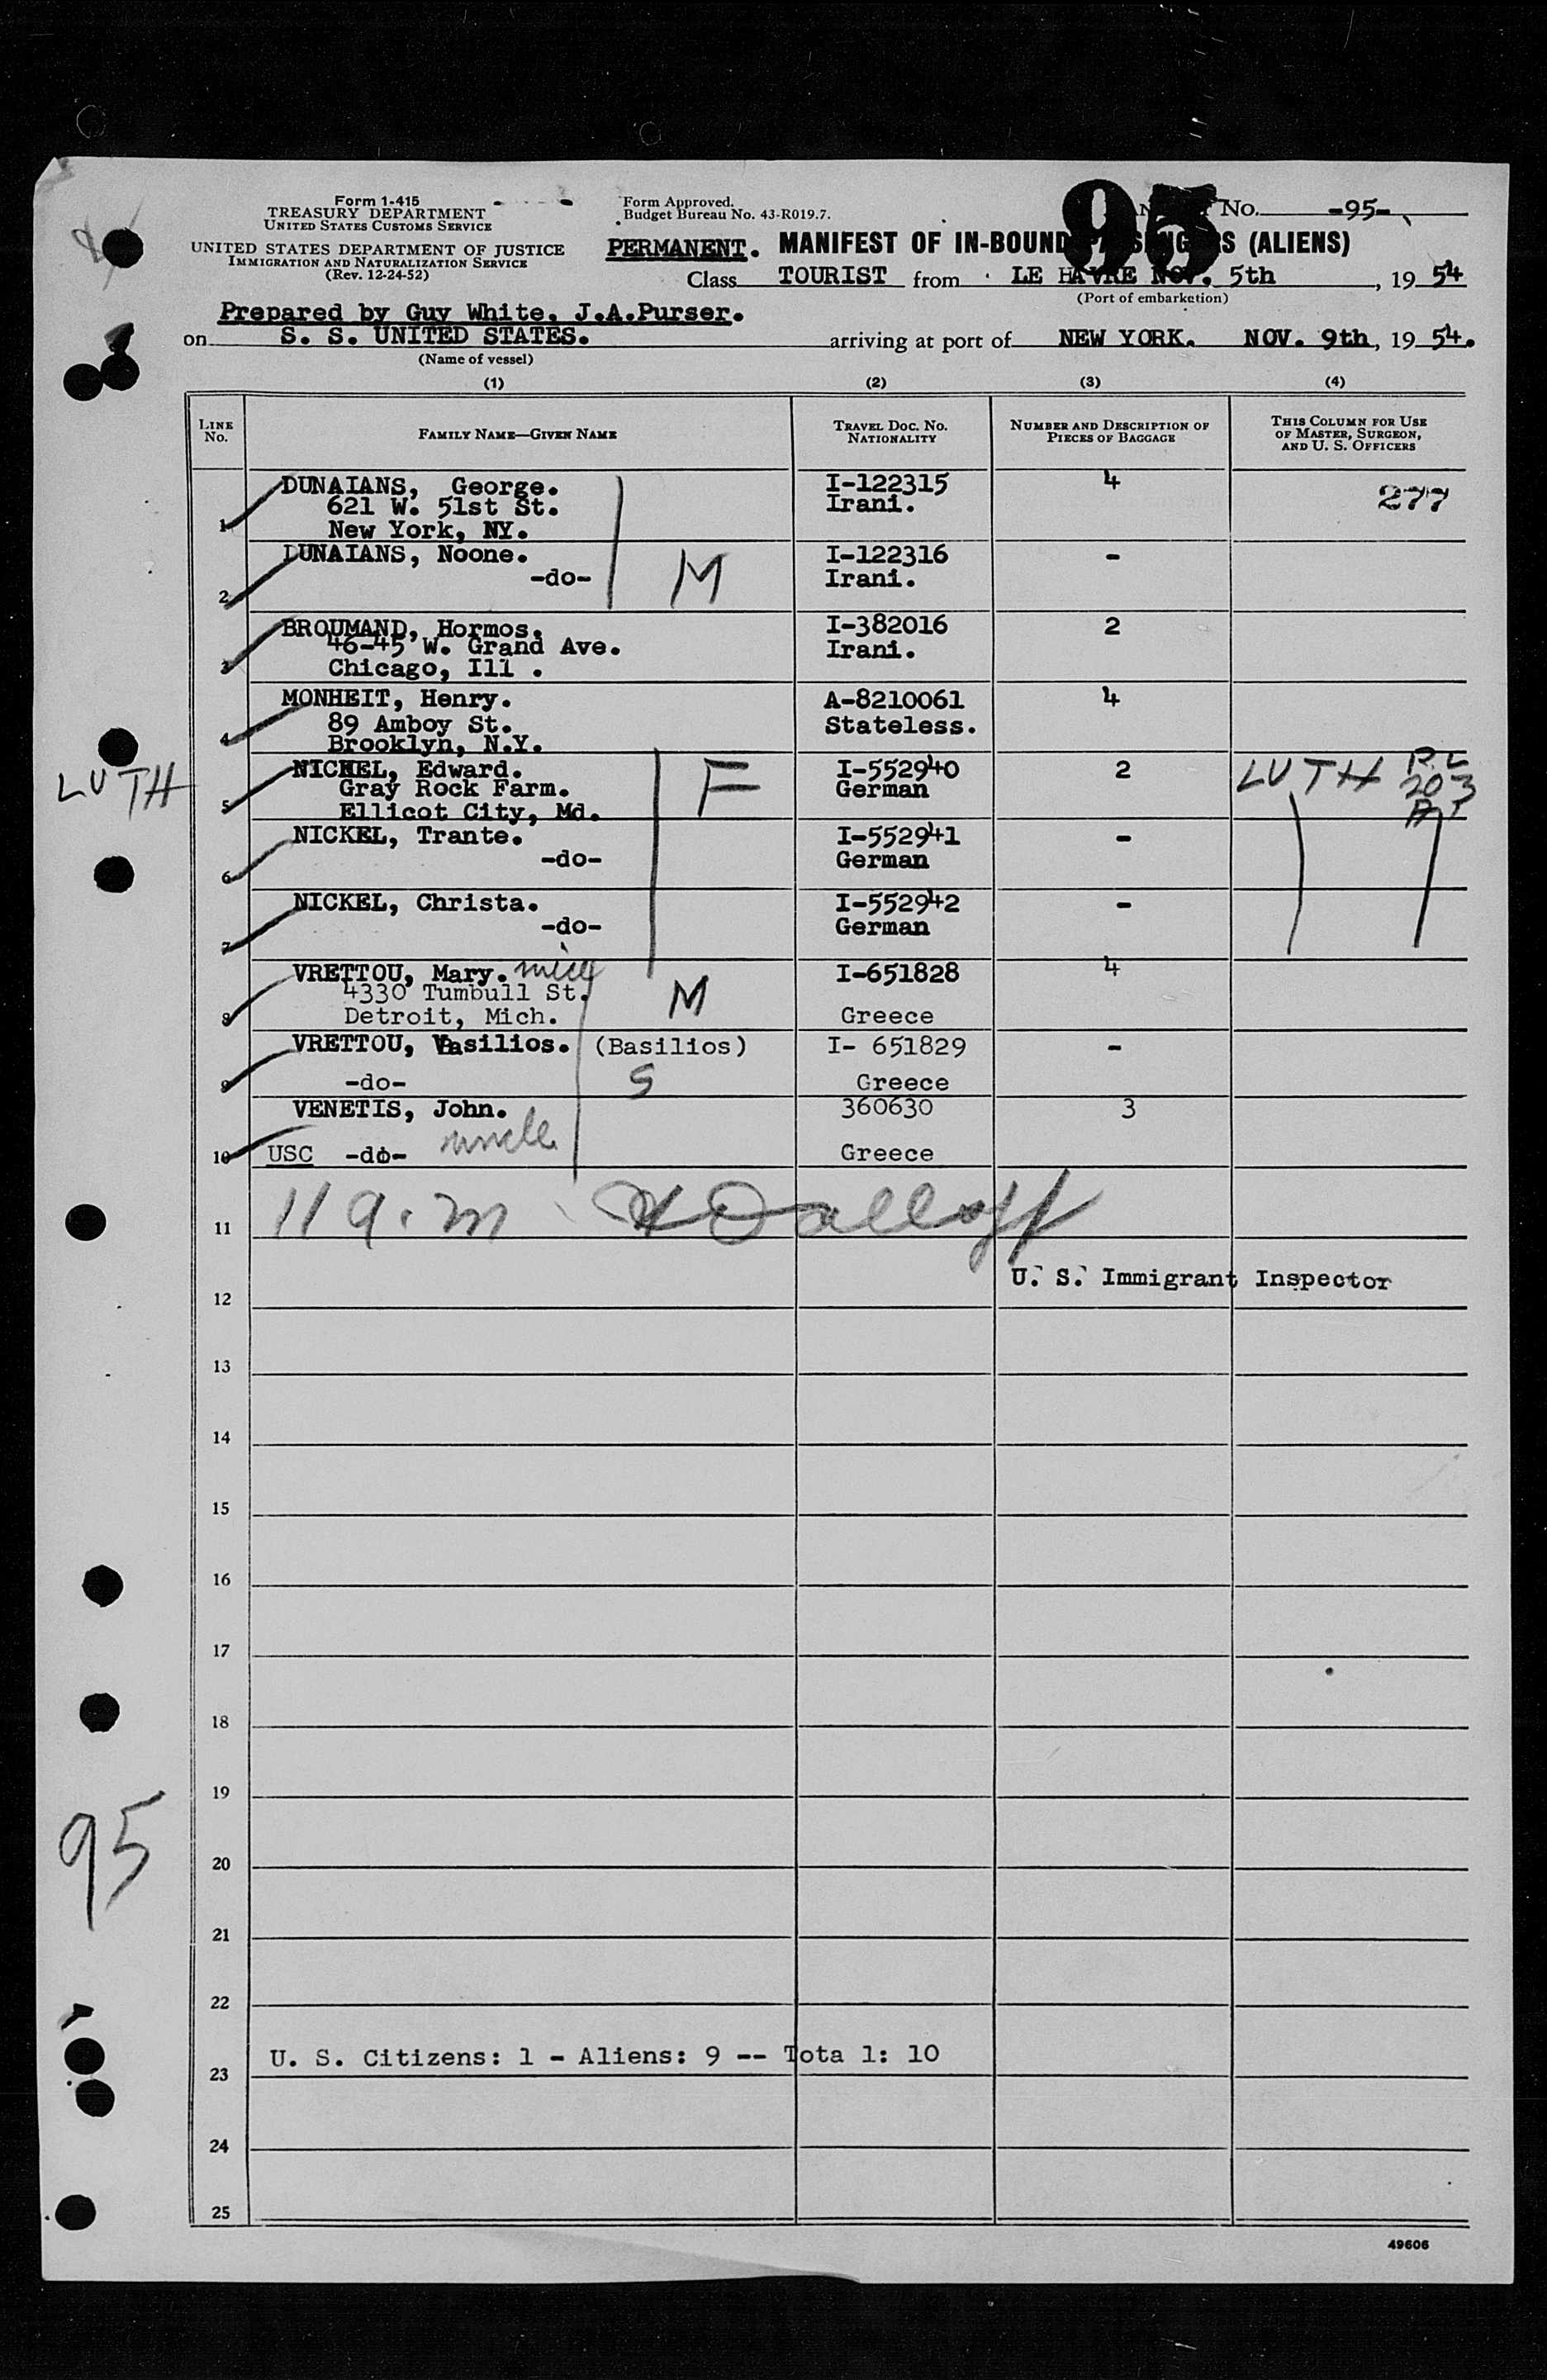 Form 1-415
TREASURY DEPARTMENT
UNITED STATES CUSTOMS SERVICE
UNITED STATES DEPARTMENT OF JUSTICE
IMMIGRATION AND NATURALIZATION SERVICE
(Rev. 12-24-52)
Form Approved.
Budget Bureau No. 43-R019.7.
95
No. -95-
PERMANENT. MANIFEST OF IN-BOUND PASSENGERS (ALIENS)
Class TOURIST from LE HAVRE NOV. 5th, 19 54
(Port of embarkation)
Prepared by Guy White, J.A.Purser.
on S. S. UNITED STATES. arriving at port of NEW YORK. NOV. 9th, 19 54.
(Name of vessel)
(1) (2) (3) (4)
LINE No. FAMILY NAME—GIVEN NAME TRAVEL DOC. NO. NATIONALITY NUMBER AND DESCRIPTION OF PIECES OF BAGGAGE THIS COLUMN FOR USE OF MASTER, SURGEON, AND U. S. OFFICERS
DUNAIANS, George. I-122315 4 277
621 W. 51st St. Irani.
1 New York, NY.
DUNAIANS, Noone. I-122316 -
-do- M Irani.
2
BROUMAND, Hormos. I-382016 2
46-45 W. Grand Ave. Irani.
3 Chicago, Ill .
MONHEIT, Henry. A-8210061 4
89 Amboy St. Stateless.
4 Brooklyn, N.Y.
LUTH NICKEL, Edward. F I-552940 2 LUTH P.L
Gray Rock Farm. German 203
5 Ellicot City, Md.
NICKEL, Trante. I-552941 -
-do- German
6
NICKEL, Christa. I-552942 -
-do- German
7
VRETTOU, Mary. I-651828 4
4330 Tumbull St. M
8 Detroit, Mich. Greece
VRETTOU, Vasilios. (Basilios) I- 651829 -
9 -do- S Greece
VENETIS, John. 360630 3
uncle
10 USC -do- Greece
11 11 a.m
U. S. Immigrant Inspector
12
13
14
15
16
17
18
19
95
20
21
22
U. S. Citizens: 1 - Aliens: 9 -- Tota l: 10
23
24
25
49606